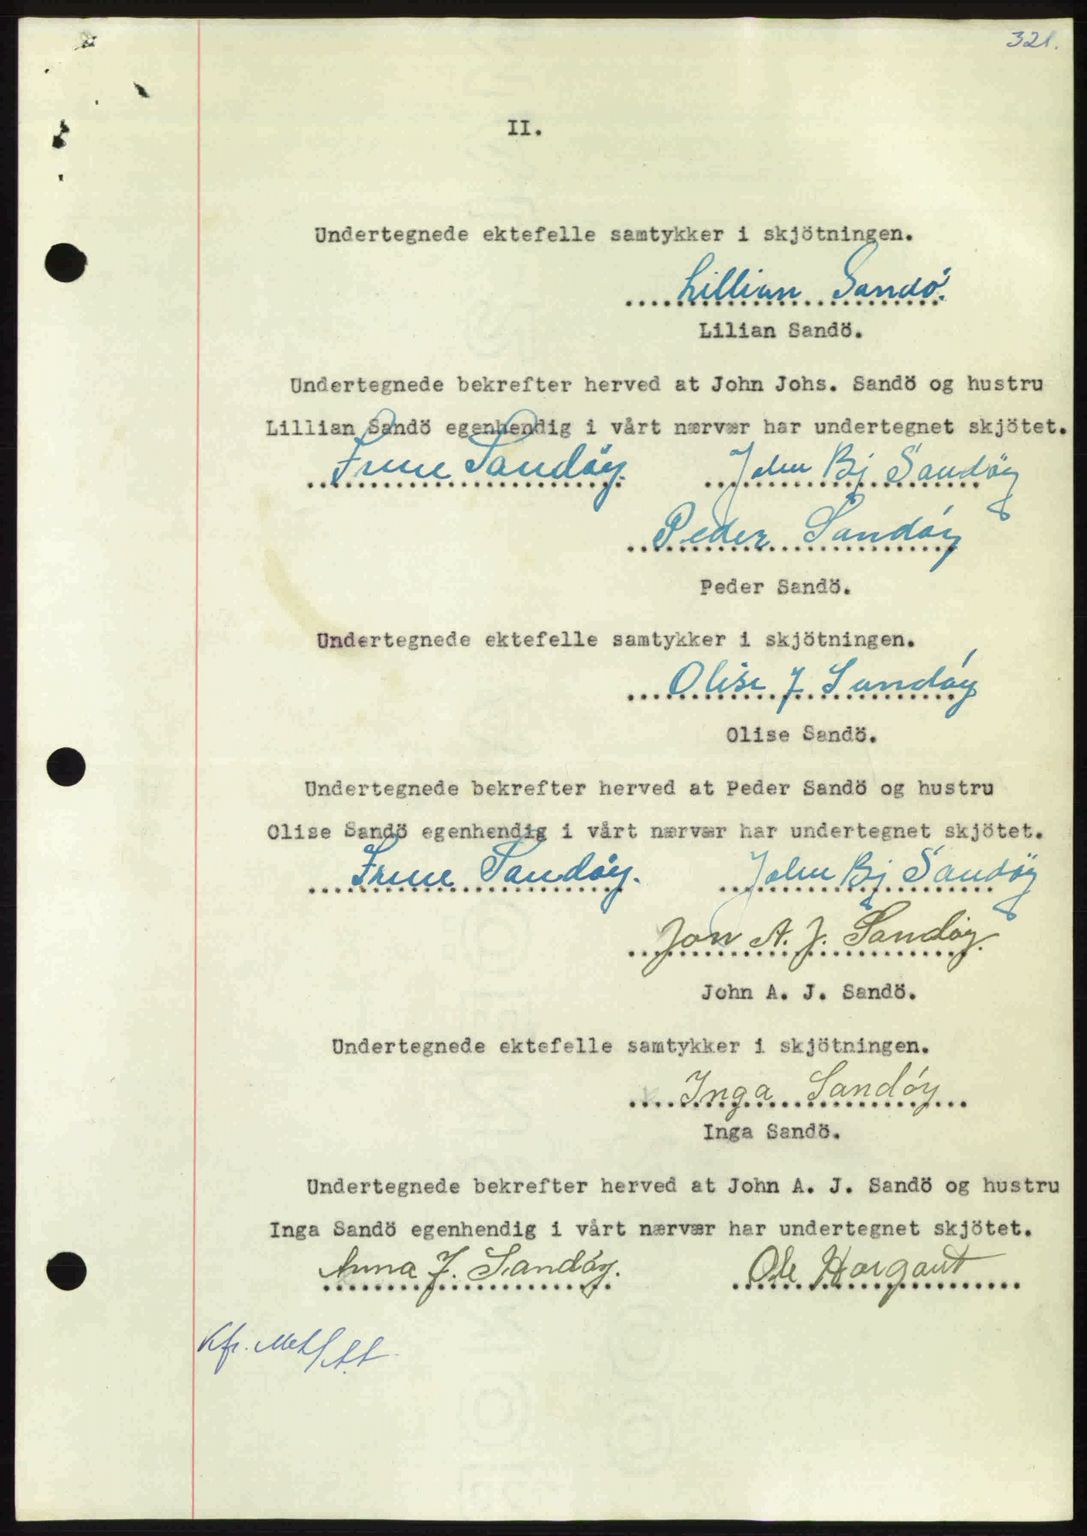 321.
II.
Undertegnede ektefelle samtykker i skjötningen.
Lillian Sandø.
Lilian Sandö.
Undertegnede bekrefter herved at John Johs. Sandö og hustru
Lillian Sandö egenhendig i vårt nærvær har undertegnet skjötet.
Irene Sandøy. John Bj Sandöy
Peder Sandøy
Peder Sandö.
Undertegnede ektefelle samtykker i skjötningen.
Olise J Sandøy
Olise Sandö.
Undertegnede bekrefter herved at Peder Sandö og hustru
Olise Sandö egenhendig i vårt nærvær har undertegnet skjötet.
Irene Sandøy. John Bj Sandöy
Jon A. J. Sandøy.
John A. J. Sandö.
Undertegnede ektefelle samtykker i skjötningen.
Inga Sandøy
Inga Sandö.
Undertegnede bekrefter herved at John A. J. Sandö og hustru
Inga Sandö egenhendig i vårt nærvær har undertegnet skjötet.
Anna J. Sandøy. Ole Horgaut
Kfr.